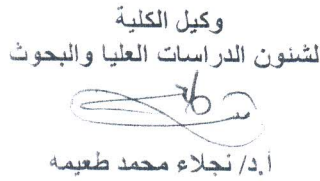 وكيل الكلية
لشئون الدراسات العليا والبحوث
أ.د/ نجلاء محمد طعيمه